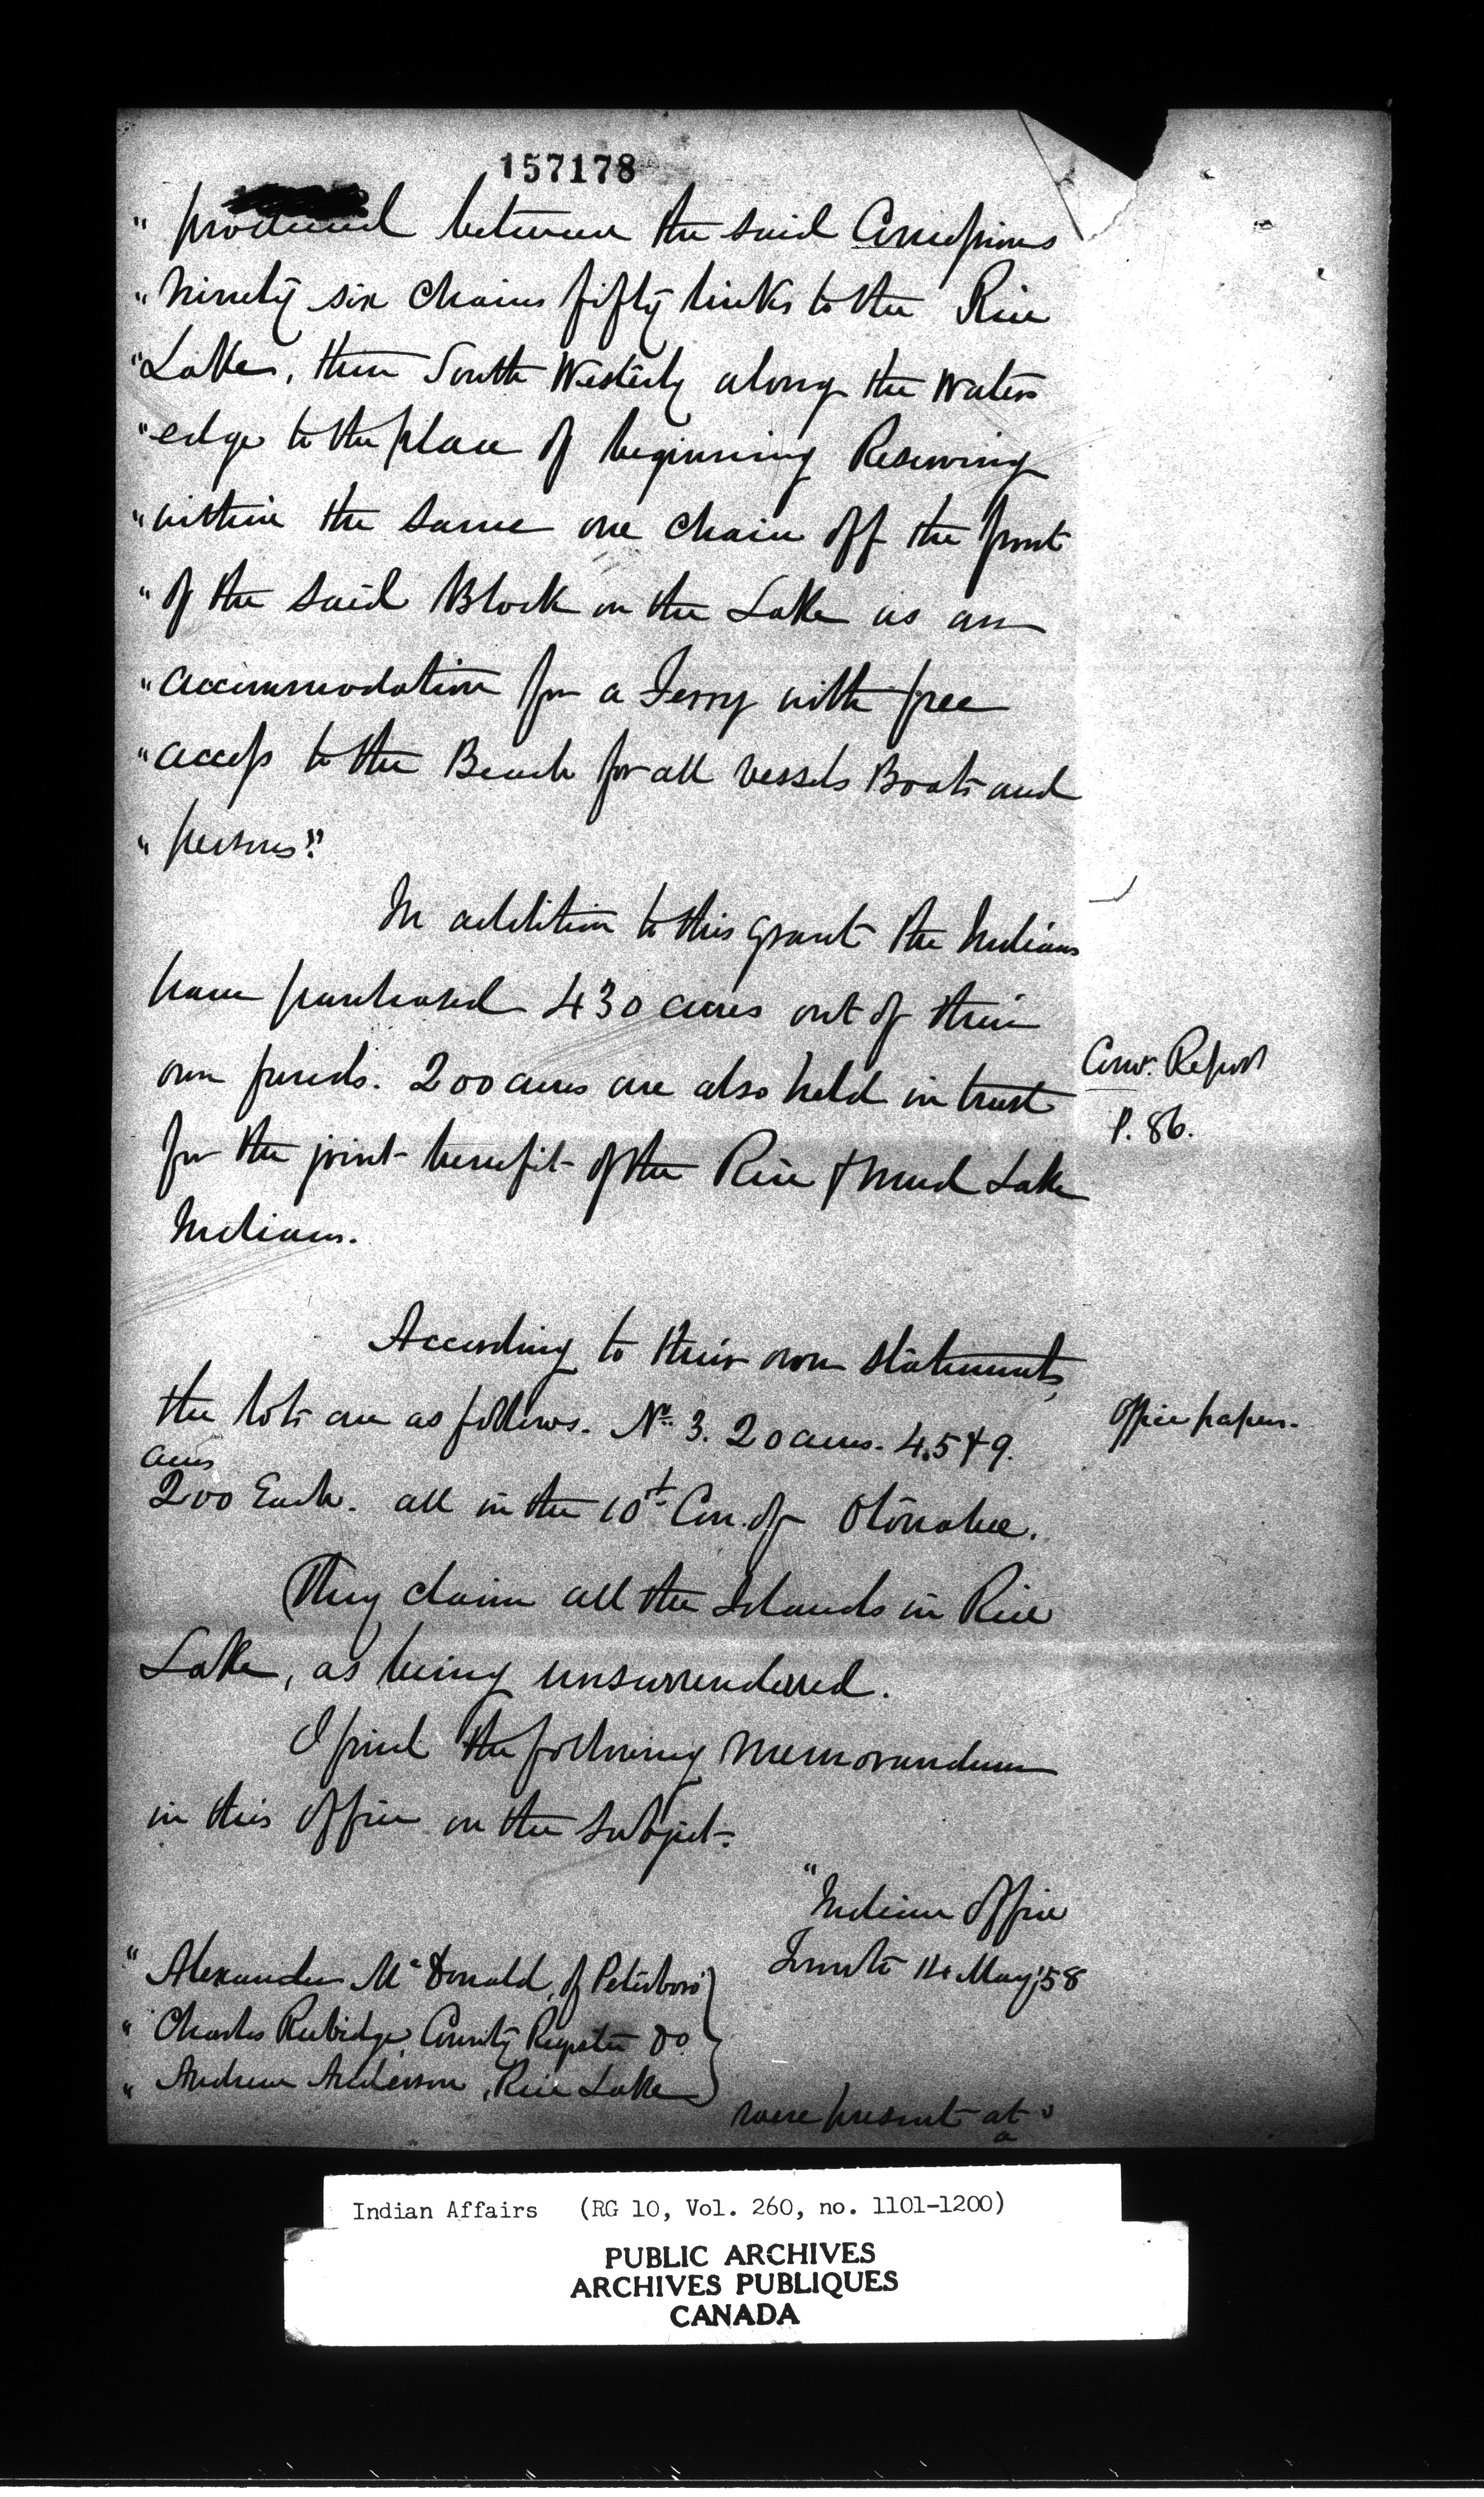 157178
" produced between the said Concessions
" Ninety six chains fifty links to the Rice
" Lake, then South Westerly along the Waters
" edge to the place of beginning Reserving
" within the same one chain off the front
" of the said Block on the Lake as an
" accommodation for a Ferry with free
" access to the Beach for all vessels Boats and
" persons".
In addition to this grant the Indians
have purchased 430 acres out of their
own funds. 200 acres are also held in trust
for the joint benefit of the Rice & Mud Lake
Indians.
Report
P. 86.
According to their own statements,
the lots are as follows. No. 3. 20 acres. 4.5 & 9.
acres
200 Each. all in the 10t Con. of Otonabee.
Office papers.
They claim all the Islands in Rice
Lake, as being unsurrendered.
I find the following Memorandum
in this office on the subject.
" Indian Office
Toronto 14 May, 58
" Alexander McDonald, of Peterboro
" Charles Rubidge, County Register Do.
" Andrew Anderson, Rice Lake
were present at
a
Indian Affairs (RG 10, Vol. 260, no. 1101-1200)
PUBLIC ARCHIVES
ARCHIVES PUBLIQUES
CANADA